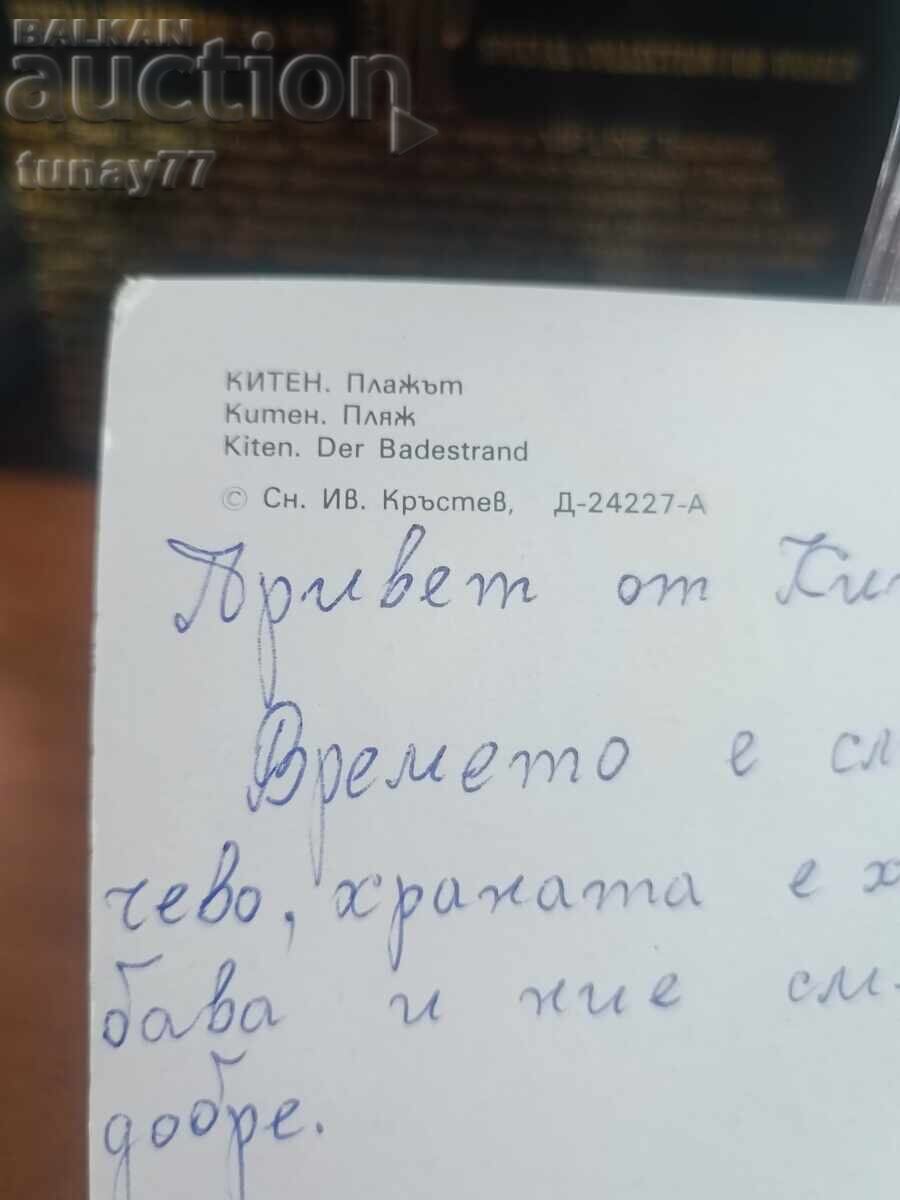 BALKAN
auction
tunay77
КИТЕН. Плажът
Китен. Пляж
Kiten. Der Badestrand
© Сн. Ив. Кръстев, Д-24227-А
Привет от Ки
Времето е сл
чево, храната е х
бава и ние см
добре.